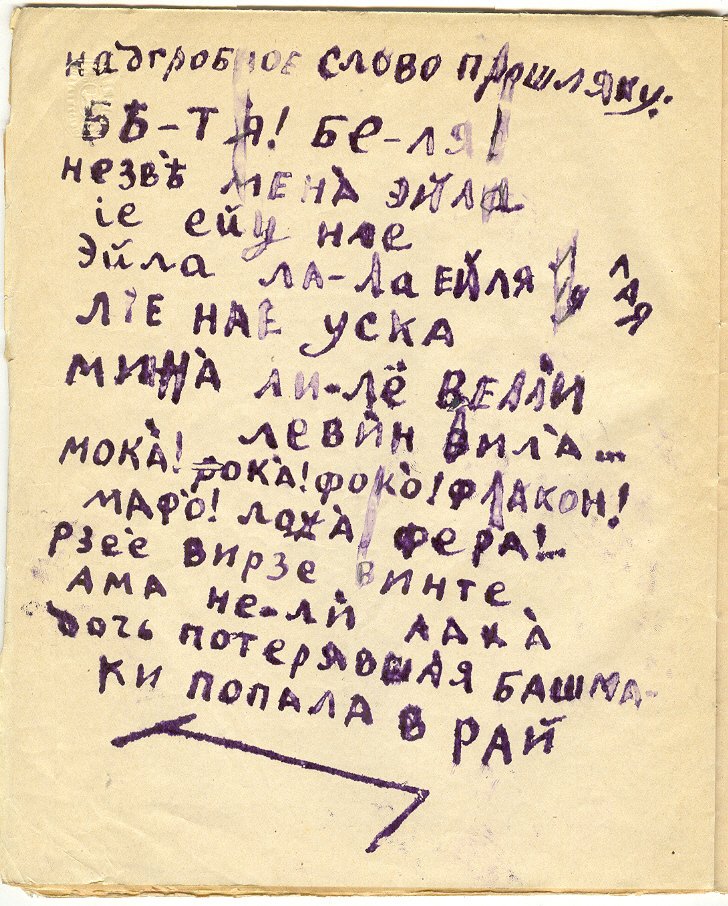 надгробное слово прошляку:
БѢ-ТА! БЕ-ЛЯ!
незвѣ МЕНА̀ ЭЙЛА
іе ейу нае
Эйла ЛА-ЛА ЕЙЛЯ ЛАЯ
ЛІЕ НАЕ УСКА
МИНА̀ ЛИ-ЛЁ ВЕЛЛ̀И
ЛЕВЍН ВИЛ̀А...
МОКА̀! РОКА̀! ФОКО! ФЛАКОН!
МАФО̀! ЛОХА̀ ФЕРА!..
РЗЕЕ ВИРЗЕ ВИНТЕ
АМА НЕ-ЛЍ ААХА̀
дочь ПОТЕРЯВШАЯ БАШМА-
КИ ПОПАЛА В РАЙ